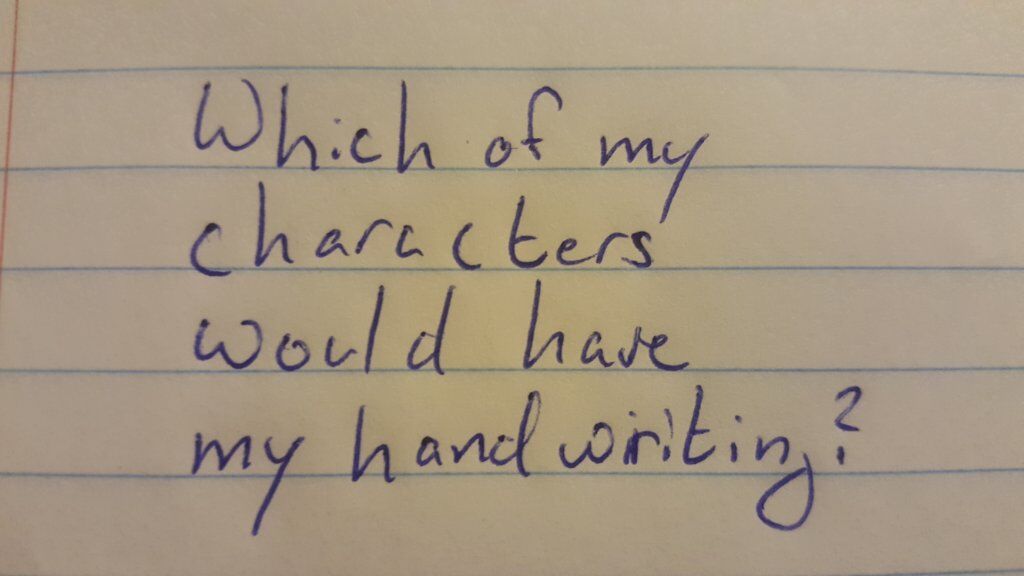 Which of my
characters
would have
my handwriting?